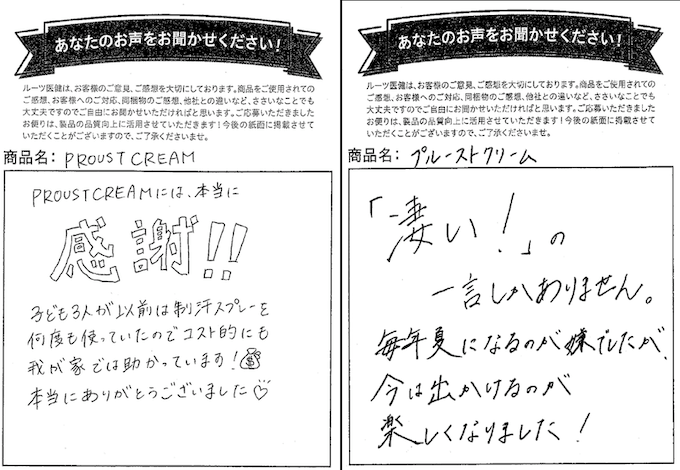 あなたのお声をお聞かせください！
ルーツ医健は、お客様のご意見、ご感想を大切にしております。商品をご使用されての
ご感想、お客様へのご対応、同梱物のご感想、他社との違いなど、ささいなことでも
大丈夫ですのでご自由にお聞かせいただければと思います。ご応募いただきました
お便りは、製品の品質向上に活用させていただきます！今後の紙面に掲載させて
いただくことがございますので、ご了承くださいませ。
商品名: PROUST CREAM
PROUSTCREAMには、本当に
感謝!!
子ども3人が以前は制汗スプレーを
何度も使っていたのでコスト的にも
我が家では助かっています！
本当にありがとうございました♡
あなたのお声をお聞かせください！
ルーツ医健は、お客様のご意見、ご感想を大切にしております。商品をご使用されての
ご感想、お客様へのご対応、同梱物のご感想、他社との違いなど、ささいなことでも
大丈夫ですのでご自由にお聞かせいただければと思います。ご応募いただきました
お便りは、製品の品質向上に活用させていただきます！今後の紙面に掲載させて
いただくことがございますので、ご了承くださいませ。
商品名: プルーストクリーム
「凄い！」の
一言しかありません。
毎年夏になるのが嫌でしたが、
今は出かけるのが
楽しくなりました！